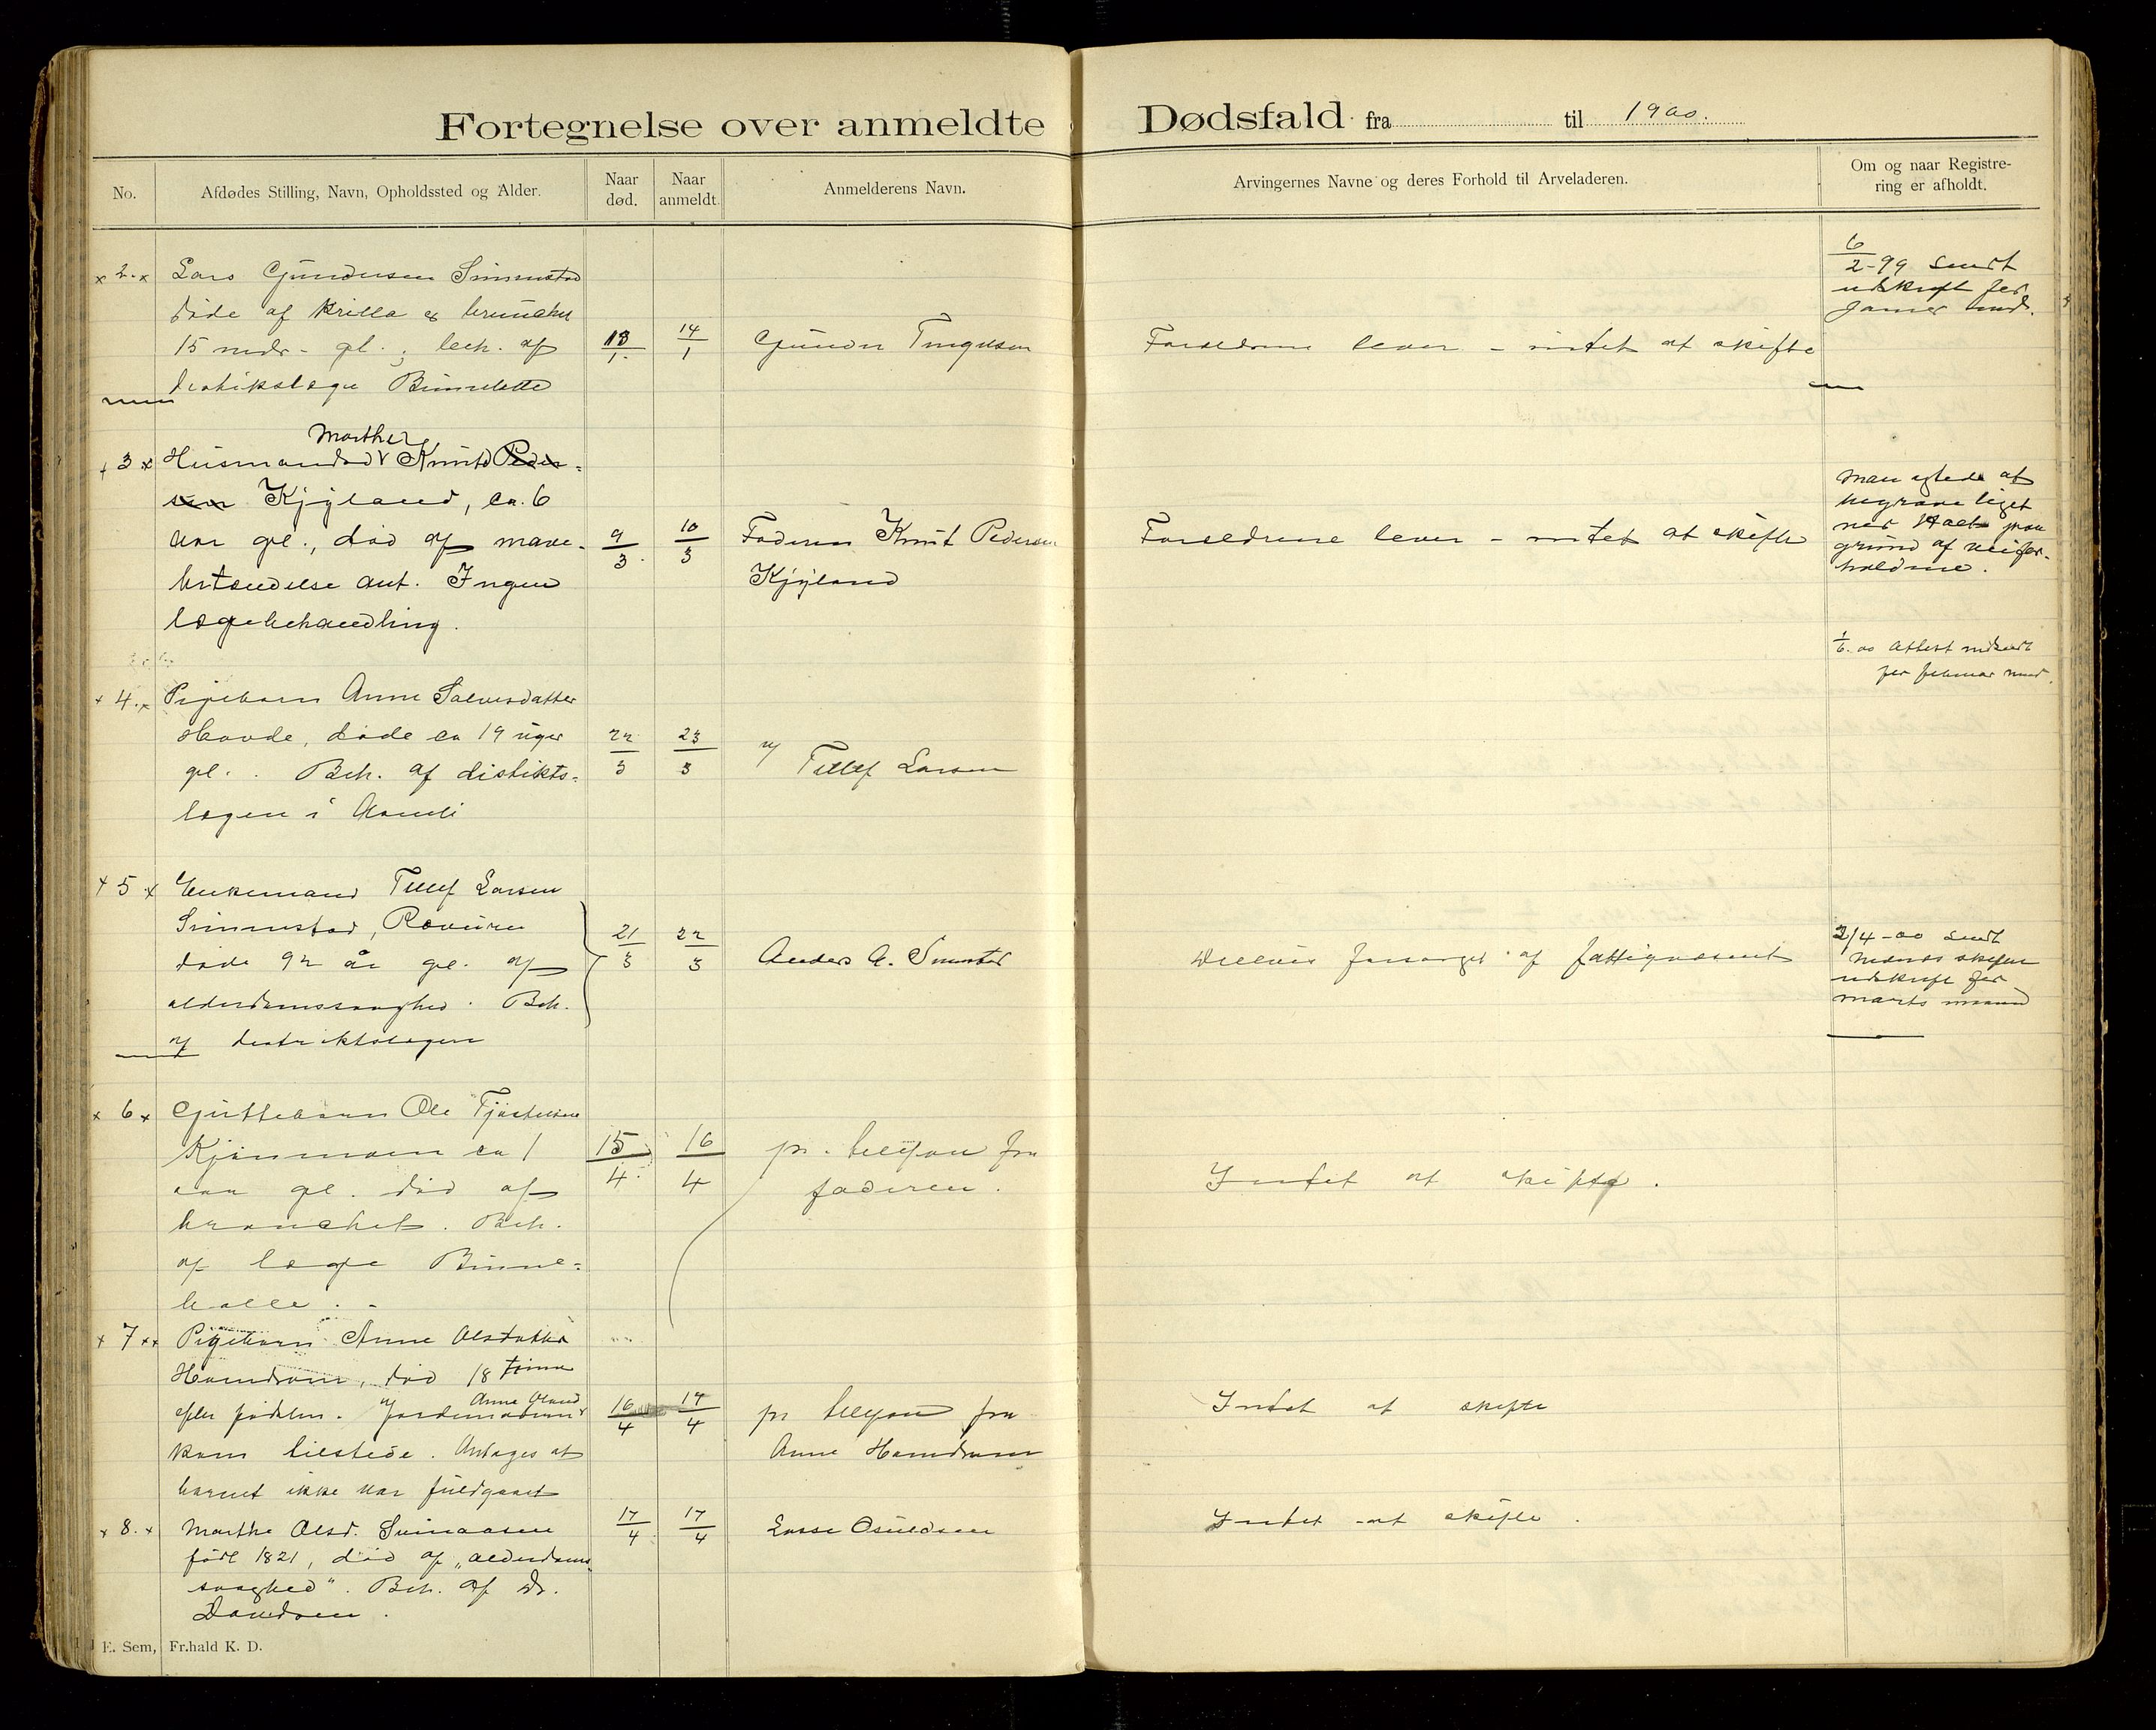 Fortegnelse over anmeldte Dødsfald fra til 1900.
No.
Afdødes Stilling, Navn, Opholdssted og Alder.
Naar død.
Naar anmeldt.
Anmelderens Navn.
Arvingernes Navne og deres Forhold til Arveladeren.
Om og naar Registre-
ring er afholdt.
2.
Lars Gundersen Simmestad
døde af krilla og
15 mdr. gl.; beh. af
13/1
14/1
Gunder
Forældrene lever – intet at skifte
6/2-99 sendt
udskrift for
Januar md.
3
Marthe
Husmandsd Knutsd Peder-
sen Kjyland, ca. 6
aar gl., død af mave-
betændelse ant. Ingen
lægebehandling.
9/3
10/3
Faderen Knut Pedersen
Kjyland
Forældrene lever – intet at skifte
Man agtede at
begrave liget
ved Kaet paa
grund af veifor-
holdene.
1/6. 00 Attest nedsendt
for februar md.
4.
Pigebarn Anne Salvesdatter
Hovde, døde ca 19 uger
gl. Beh. af distikts-
lægen i Aamli
22/3
23/3
v/ Tellef Larsen
5
Enkemand Tellef Larsen
Simmestad, Røvuren
døde 92 år gl. af
alderdomssvaghed. Beh.
af distriktslægen
21/3
22/3
Anders A. Simestad
Delevis forsørget af fattigvæsent
2/4-00 sendt
udskrift for
marts maaned
6
Guttebarn Ole
ca 1
aar gl. død af
bronchit. Beh.
af læge Binne-
balle.
15/4
16/4
pr. telefon fra
faderen.
Intet at skifte.
7
Pigebarn Anne Olsdatter
Homdrom, død 18 timer
efter fødslen. Jordemoderen
Anne
kom tilstede. Antages at
barnet ikke var fuldgaaet
16/4
17/4
pr telefon fra
Anne Homdrom
Intet at skifte
8.
Marthe Olsd. Svinaasen
født 1821, død af "alderdoms-
svaghed". Beh. af Dr.
Davidsen.
17/4
17/4
Lasse Osuldsen
Intet at skifte.
E. Sem, Fr.hald K. D.